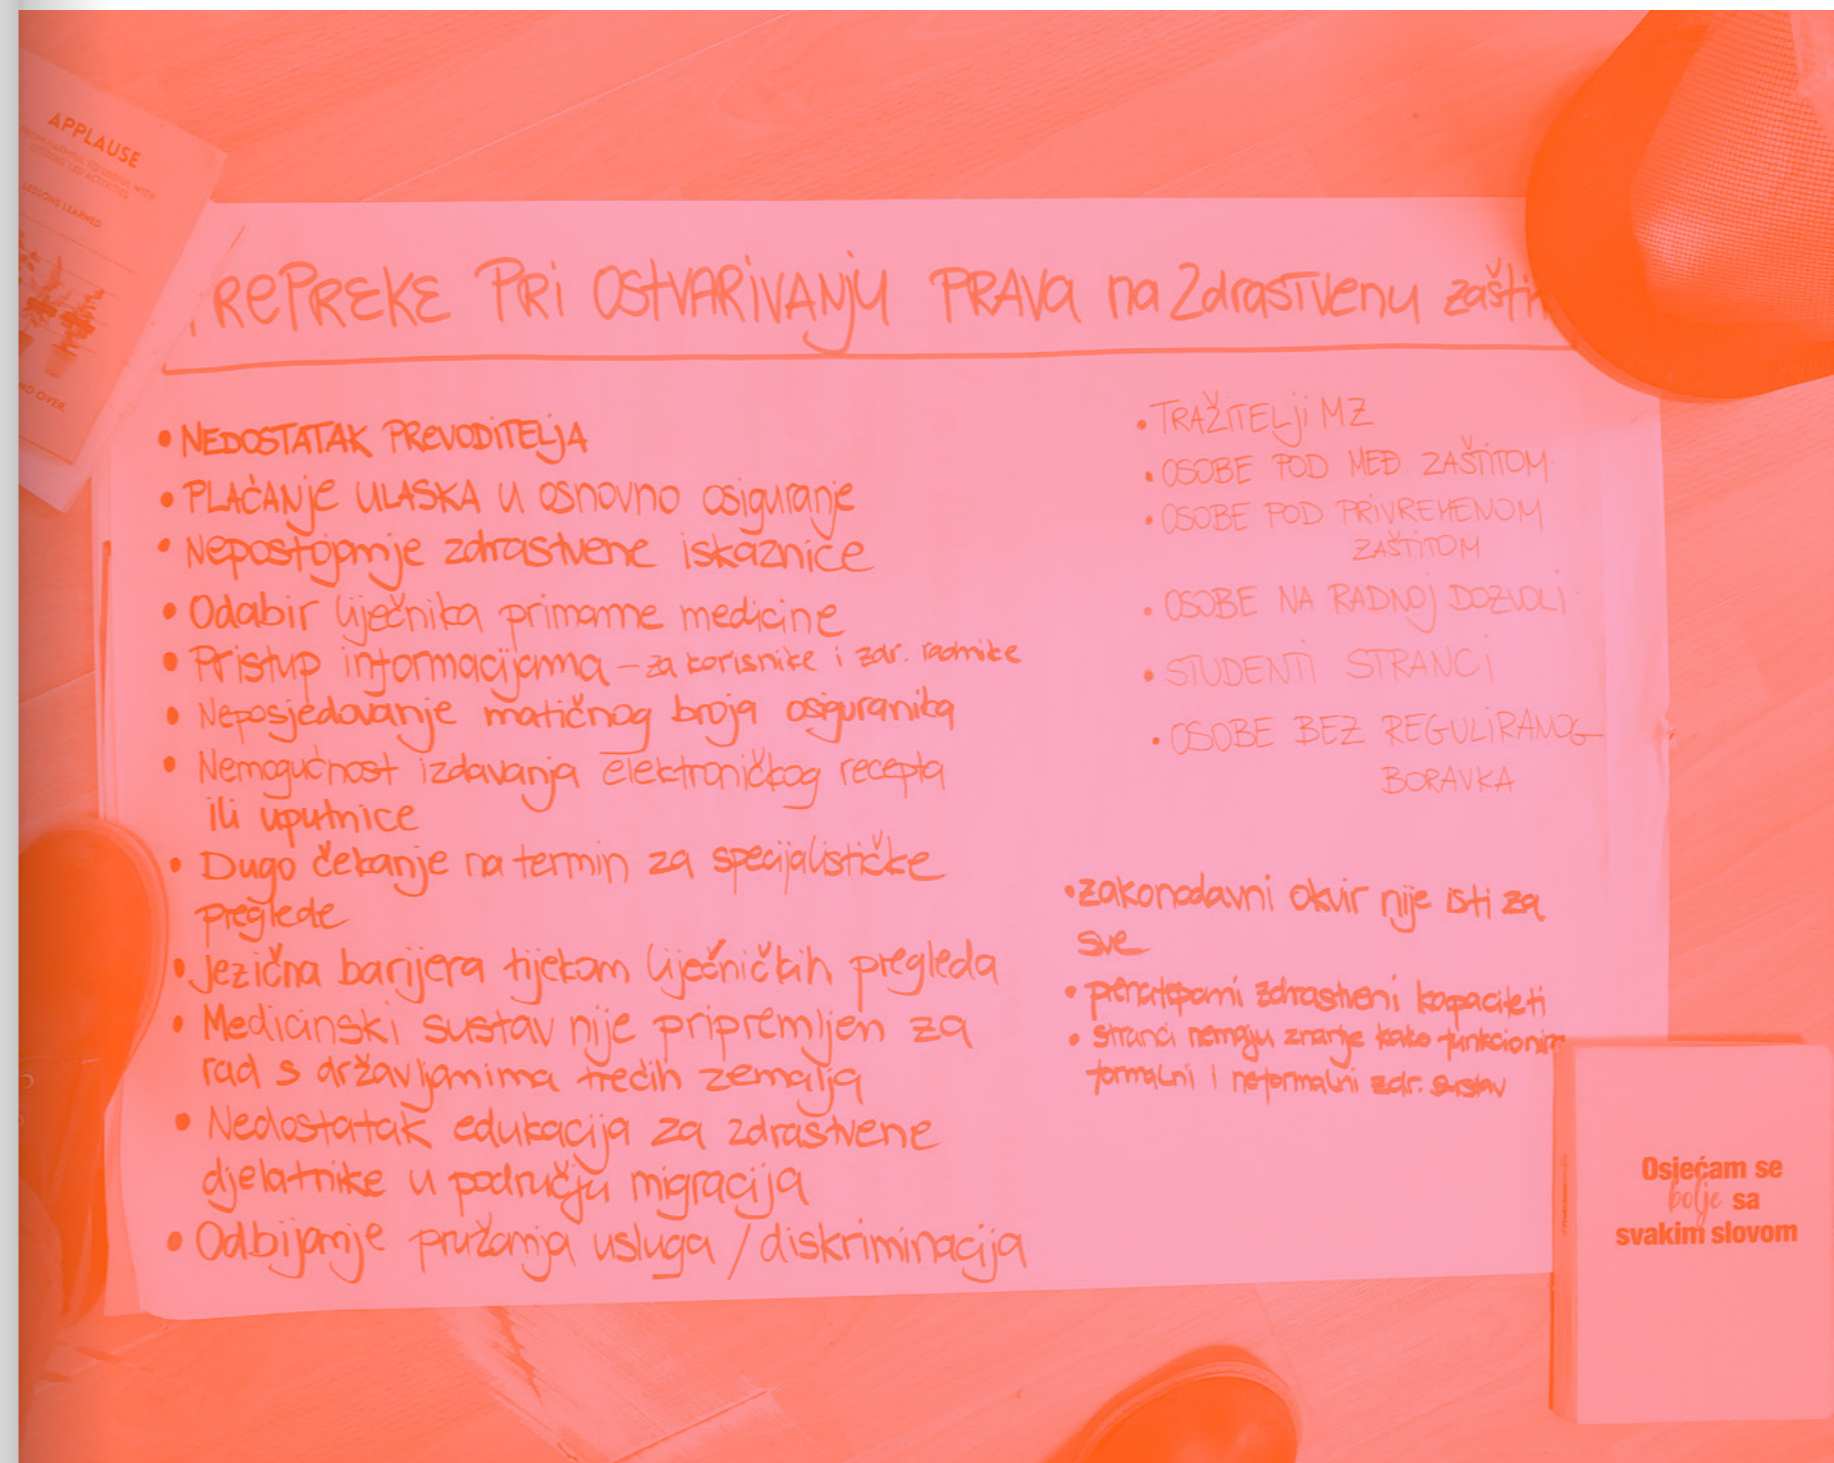 APPLAUSE
FROM HARMFUL TO USEFUL WITH
CITIZENS LED ACTIVITIES
LESSONS LEARNED
ND OVER.
REPREKE PRI OSTVARIVANJU PRAVA na Zdrastvenu zašti
• NEDOSTATAK PREVODITELJA
• PLAĆANJE ULASKA U osnovno osiguranje
• Nepostojanje zdrastvene iskaznice
• Odabir liječnika primarne medicine
• Pristup informacijama – za korisnike i zdr. radnike
• Neposjedovanje matičnog broja osiguranika
• Nemogućnost izdavanja elektroničkog recepta
ili uputnice
• Dugo čekanje na termin za specijalističke
preglede
• Jezična barijera tijekom liječničkih pregleda
• Medicinski sustav nije pripremljen za
rad s državljanima trećih zemalja
• Nedostatak edukacija za zdrastvene
djelatnike u području migracija
• Odbijanje pružanja usluga / diskriminacija
• TRAŽITELJI MZ
• OSOBE POD MEĐ. ZAŠTITOM
• OSOBE POD PRIVREMENOM
ZAŠTITOM
• OSOBE NA RADNOJ DOZVOLI
• STUDENTI STRANCI
• OSOBE BEZ REGULIRANOG
BORAVKA
• zakonodavni okvir nije isti za
sve
• zdrastveni kapaciteti
• stranci nemaju znanje kako funkcionira
formalni i neformalni zdr. sustav
Osjećam se
bolje sa
svakim slovom